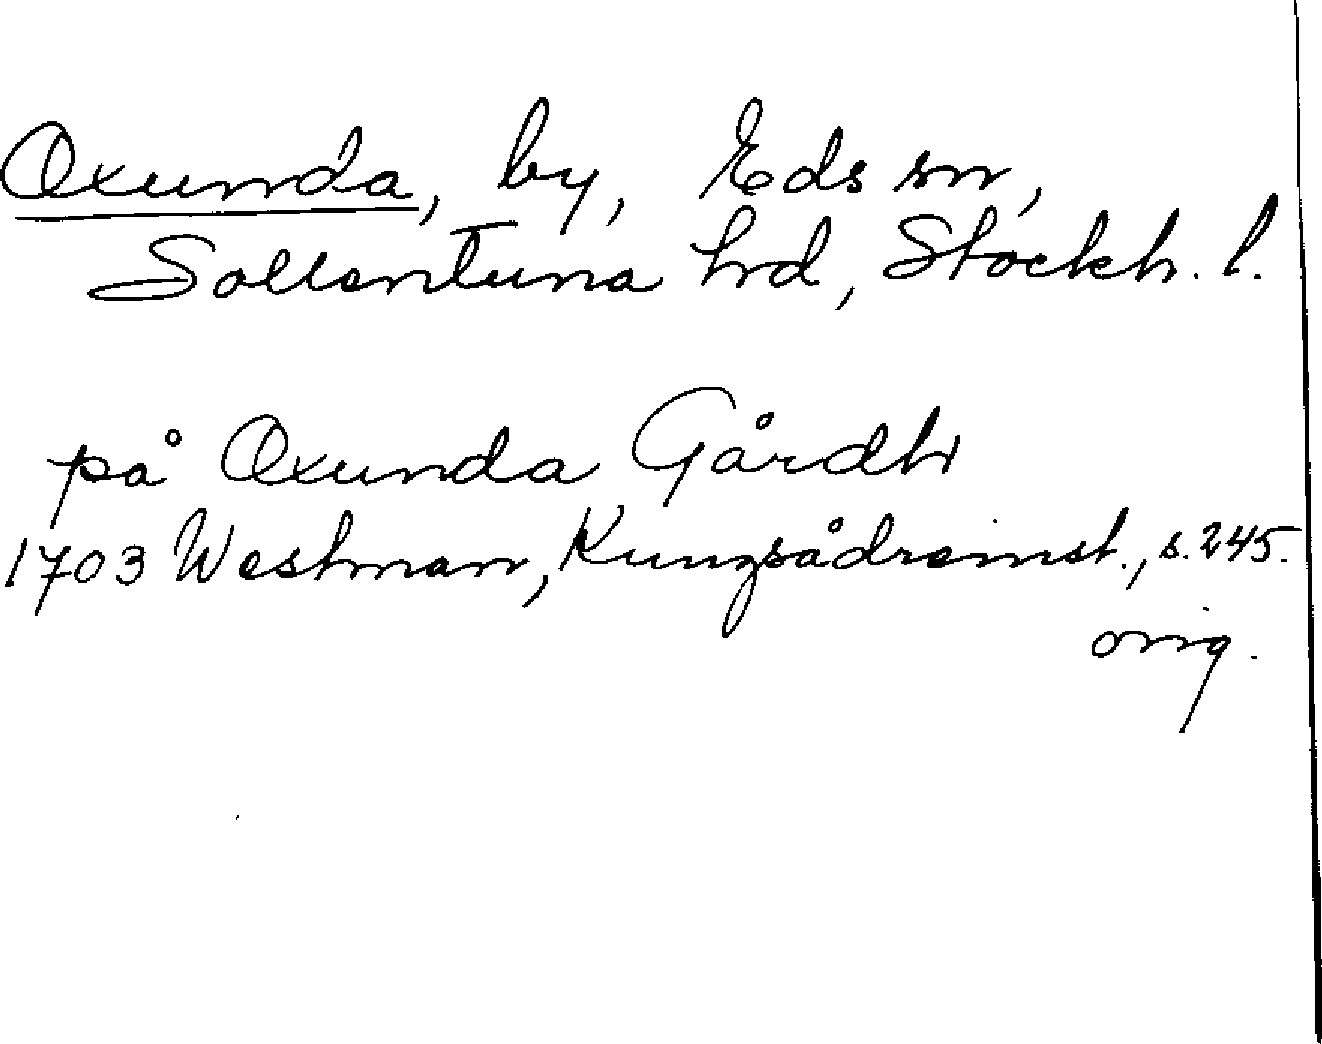 Oxunda, by, Eds sn,
Sollentuna hd, Stockh. l.
på Oxunda Gårdh
1703 Westman, Kungsådreinst., s. 245.
orig.